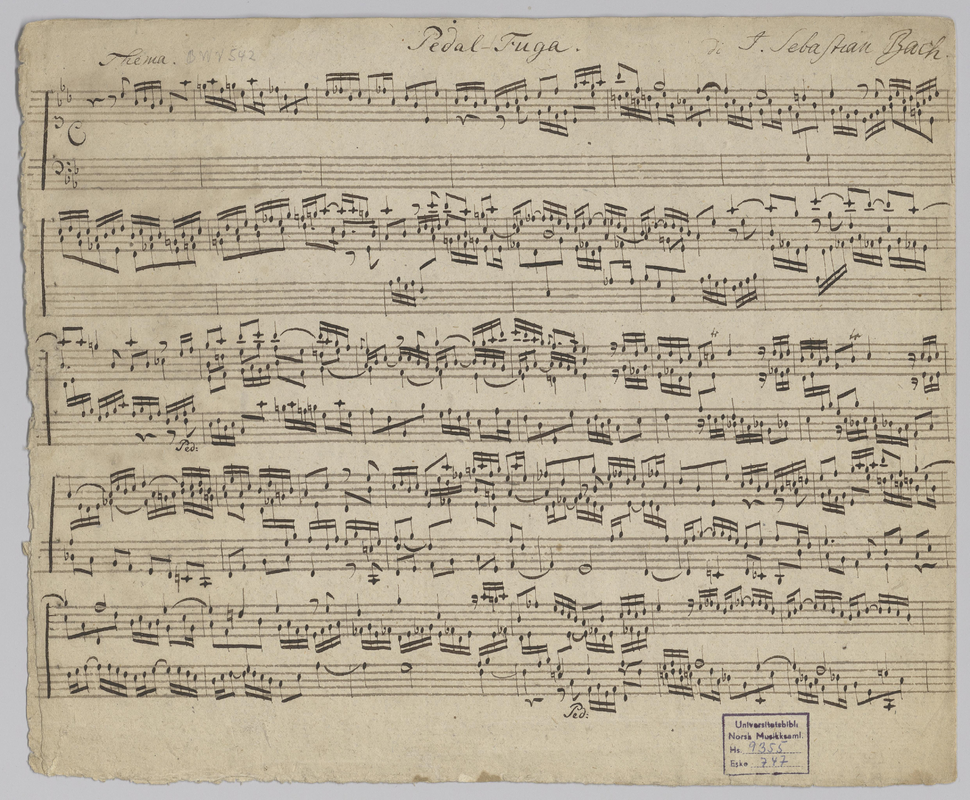 Pedal-Fuga. di J. Sebastian Bach.
Thema. BWV 542
Ped:
Ped:
Universitetsbibl.
Norsk Musikksaml.
Hs. 9355
Eske 747